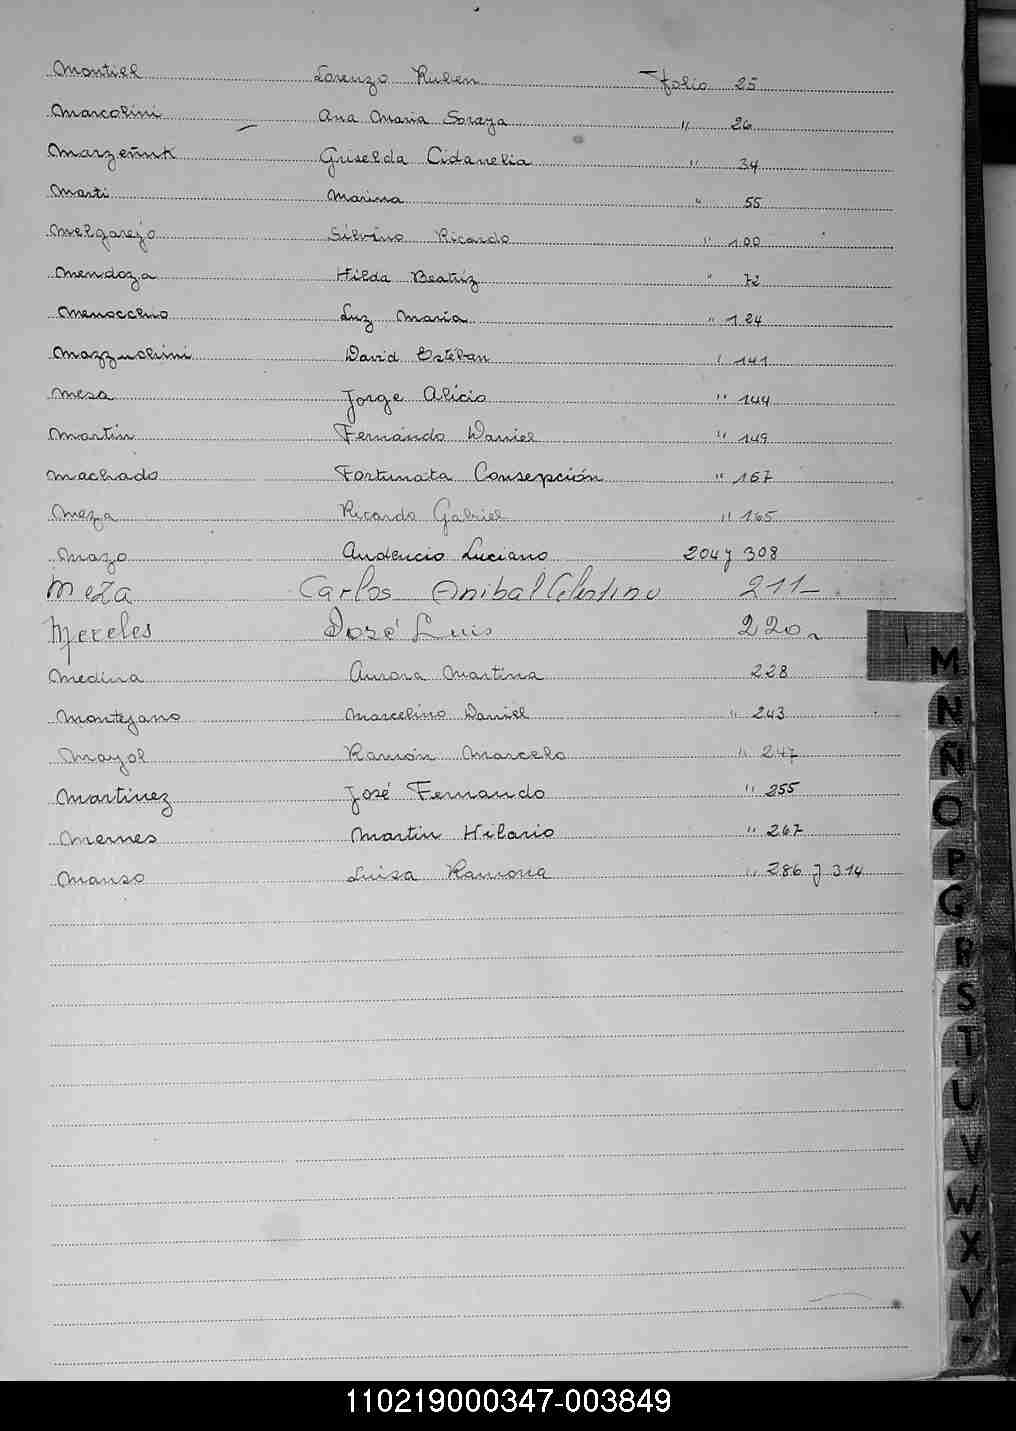 Montiel Lorenzo Ruben Folio 25
Marcolini Ana Maria Soraya " 26
Griselda Cidanelia " 34
Marti Marina " 55
Melgarejo Silvino Ricardo " 100
Mendoza Hilda Beatriz " 72
Menocchio Luz Maria " 124
Mazzuchini David Estéban " 141
Mesa Jorge Alicio " 144
Martin Fernándo Daniel " 149
Machado Fortunata Consepción " 157
Meza Ricardo Gabriel " 165
Mazo Audencio Luciano 204 y 308
Meza Carlos Anibal Celestino 211-
Mereles José Luis 220
Medina Aurora Martina 228
Montejano Marcelino Daniel " 243
Mayol Ramón Marcelo " 247
Martinez José Fernando " 255
Mernes Martin Hilario " 267
Manso Luisa Ramona " 286 y 314
M
N
Ñ
O
P
Q
R
S
T
U
V
W
X
Y
Z
110219000347-003849